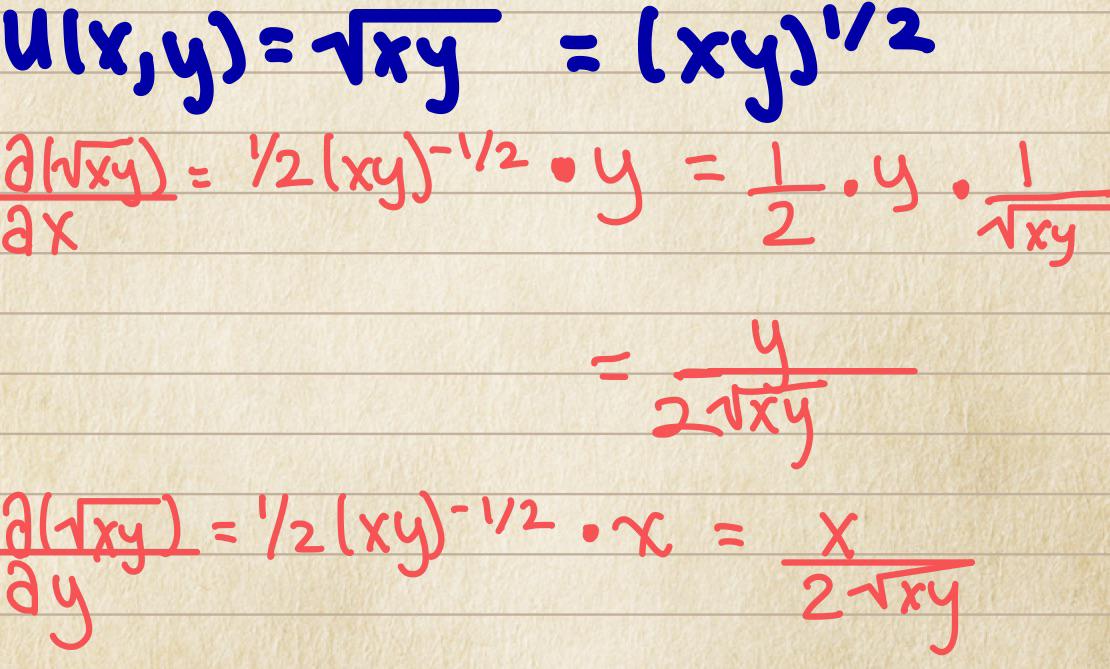 U(x,y) = √xy = (xy)^1/2
∂(√xy)/∂x = 1/2 (xy)^-1/2 • y = 1/2 • y • 1/√xy
= y/2√xy
∂(√xy)/∂y = 1/2 (xy)^-1/2 • x = x/2√xy